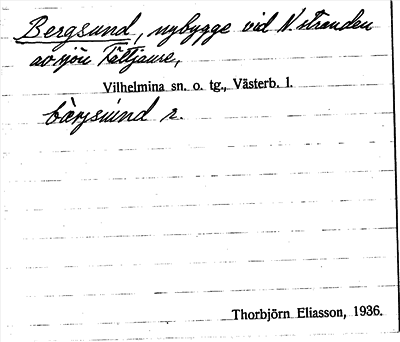 Bergsund, nybygge vid N. stranden
av sjön Fättjaure,
Vilhelmina sn. o. tg., Västerb. l.
bàrjsúnd 2.
Thorbjörn Eliasson, 1936.